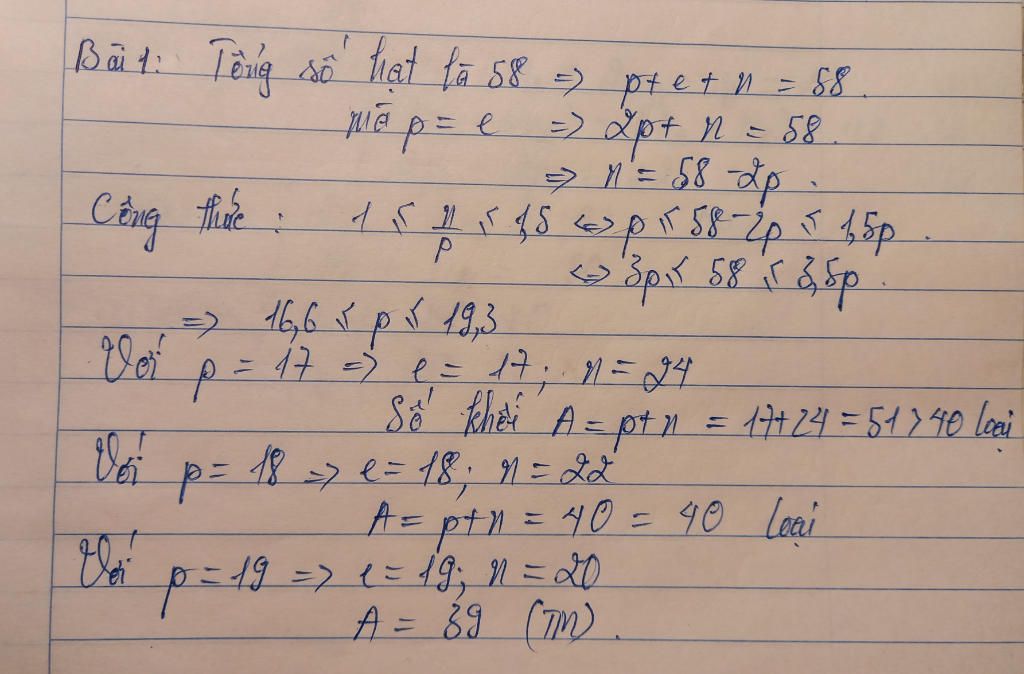 Bài 1: Tổng số hạt là 58 => p + e + n = 58.
mà p = e => 2p + n = 58.
=> n = 58 - 2p.
Công thức: 1 ≤ n/p ≤ 1,5 <=> p ≤ 58 - 2p ≤ 1,5p.
<=> 3p ≤ 58 ≤ 3,5p.
=> 16,6 ≤ p ≤ 19,3
Với p = 17 => e = 17; n = 24
Số khối A = p + n = 17 + 24 = 51 > 40 loại
Với p = 18 => e = 18; n = 22
A = p + n = 40 = 40 loại
Với p = 19 => e = 19; n = 20
A = 39 (TM).